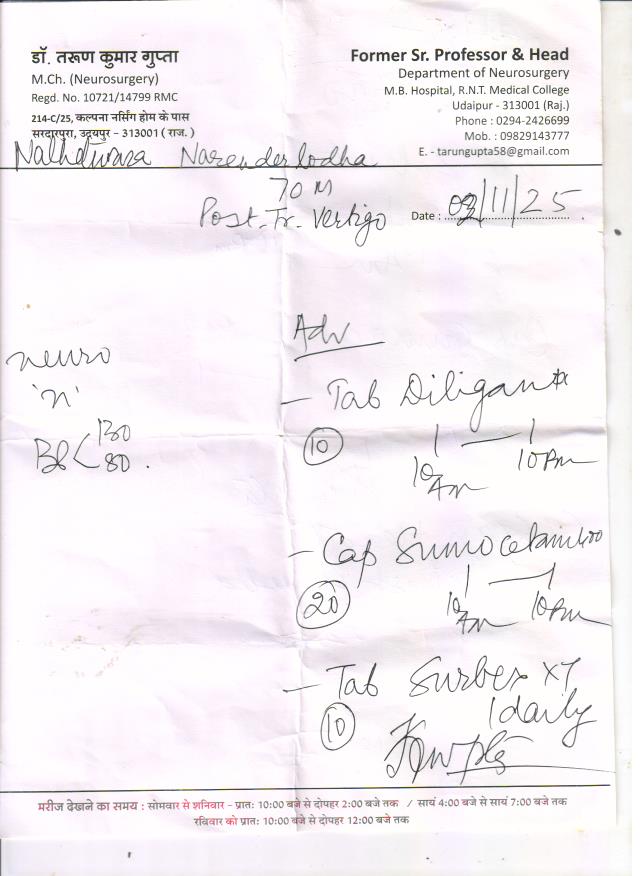 डॉ. तरूण कुमार गुप्ता
M.Ch. (Neurosurgery)
Regd. No. 10721/14799 RMC
214-C/25, कल्पना नर्सिंग होम के पास
सरदारपुरा, उदयपुर – 313001 ( राज. )
Former Sr. Professor & Head
Department of Neurosurgery
M.B. Hospital, R.N.T. Medical College
Udaipur - 313001 (Raj.)
Phone : 0294-2426699
Mob. : 09829143777
E. - tarungupta58@gmail.com
Nathdwara Narender lodha
70 M
Post-Tr. Vertigo
Date : 03/11/25
Adv
neuro
'n'
130
80
- Tab Diligan
10
1 — 1
10 Am 10 Pm
- Cap
20
1 — 1
10 Am 10 Pm
- Tab Surbex XT
10
1 daily
मरीज देखने का समय : सोमवार से शनिवार – प्रात: 10:00 बजे से दोपहर 2:00 बजे तक / सायं 4:00 बजे से सायं 7:00 बजे तक
रविवार को प्रात: 10:00 बजे से दोपहर 12:00 बजे तक